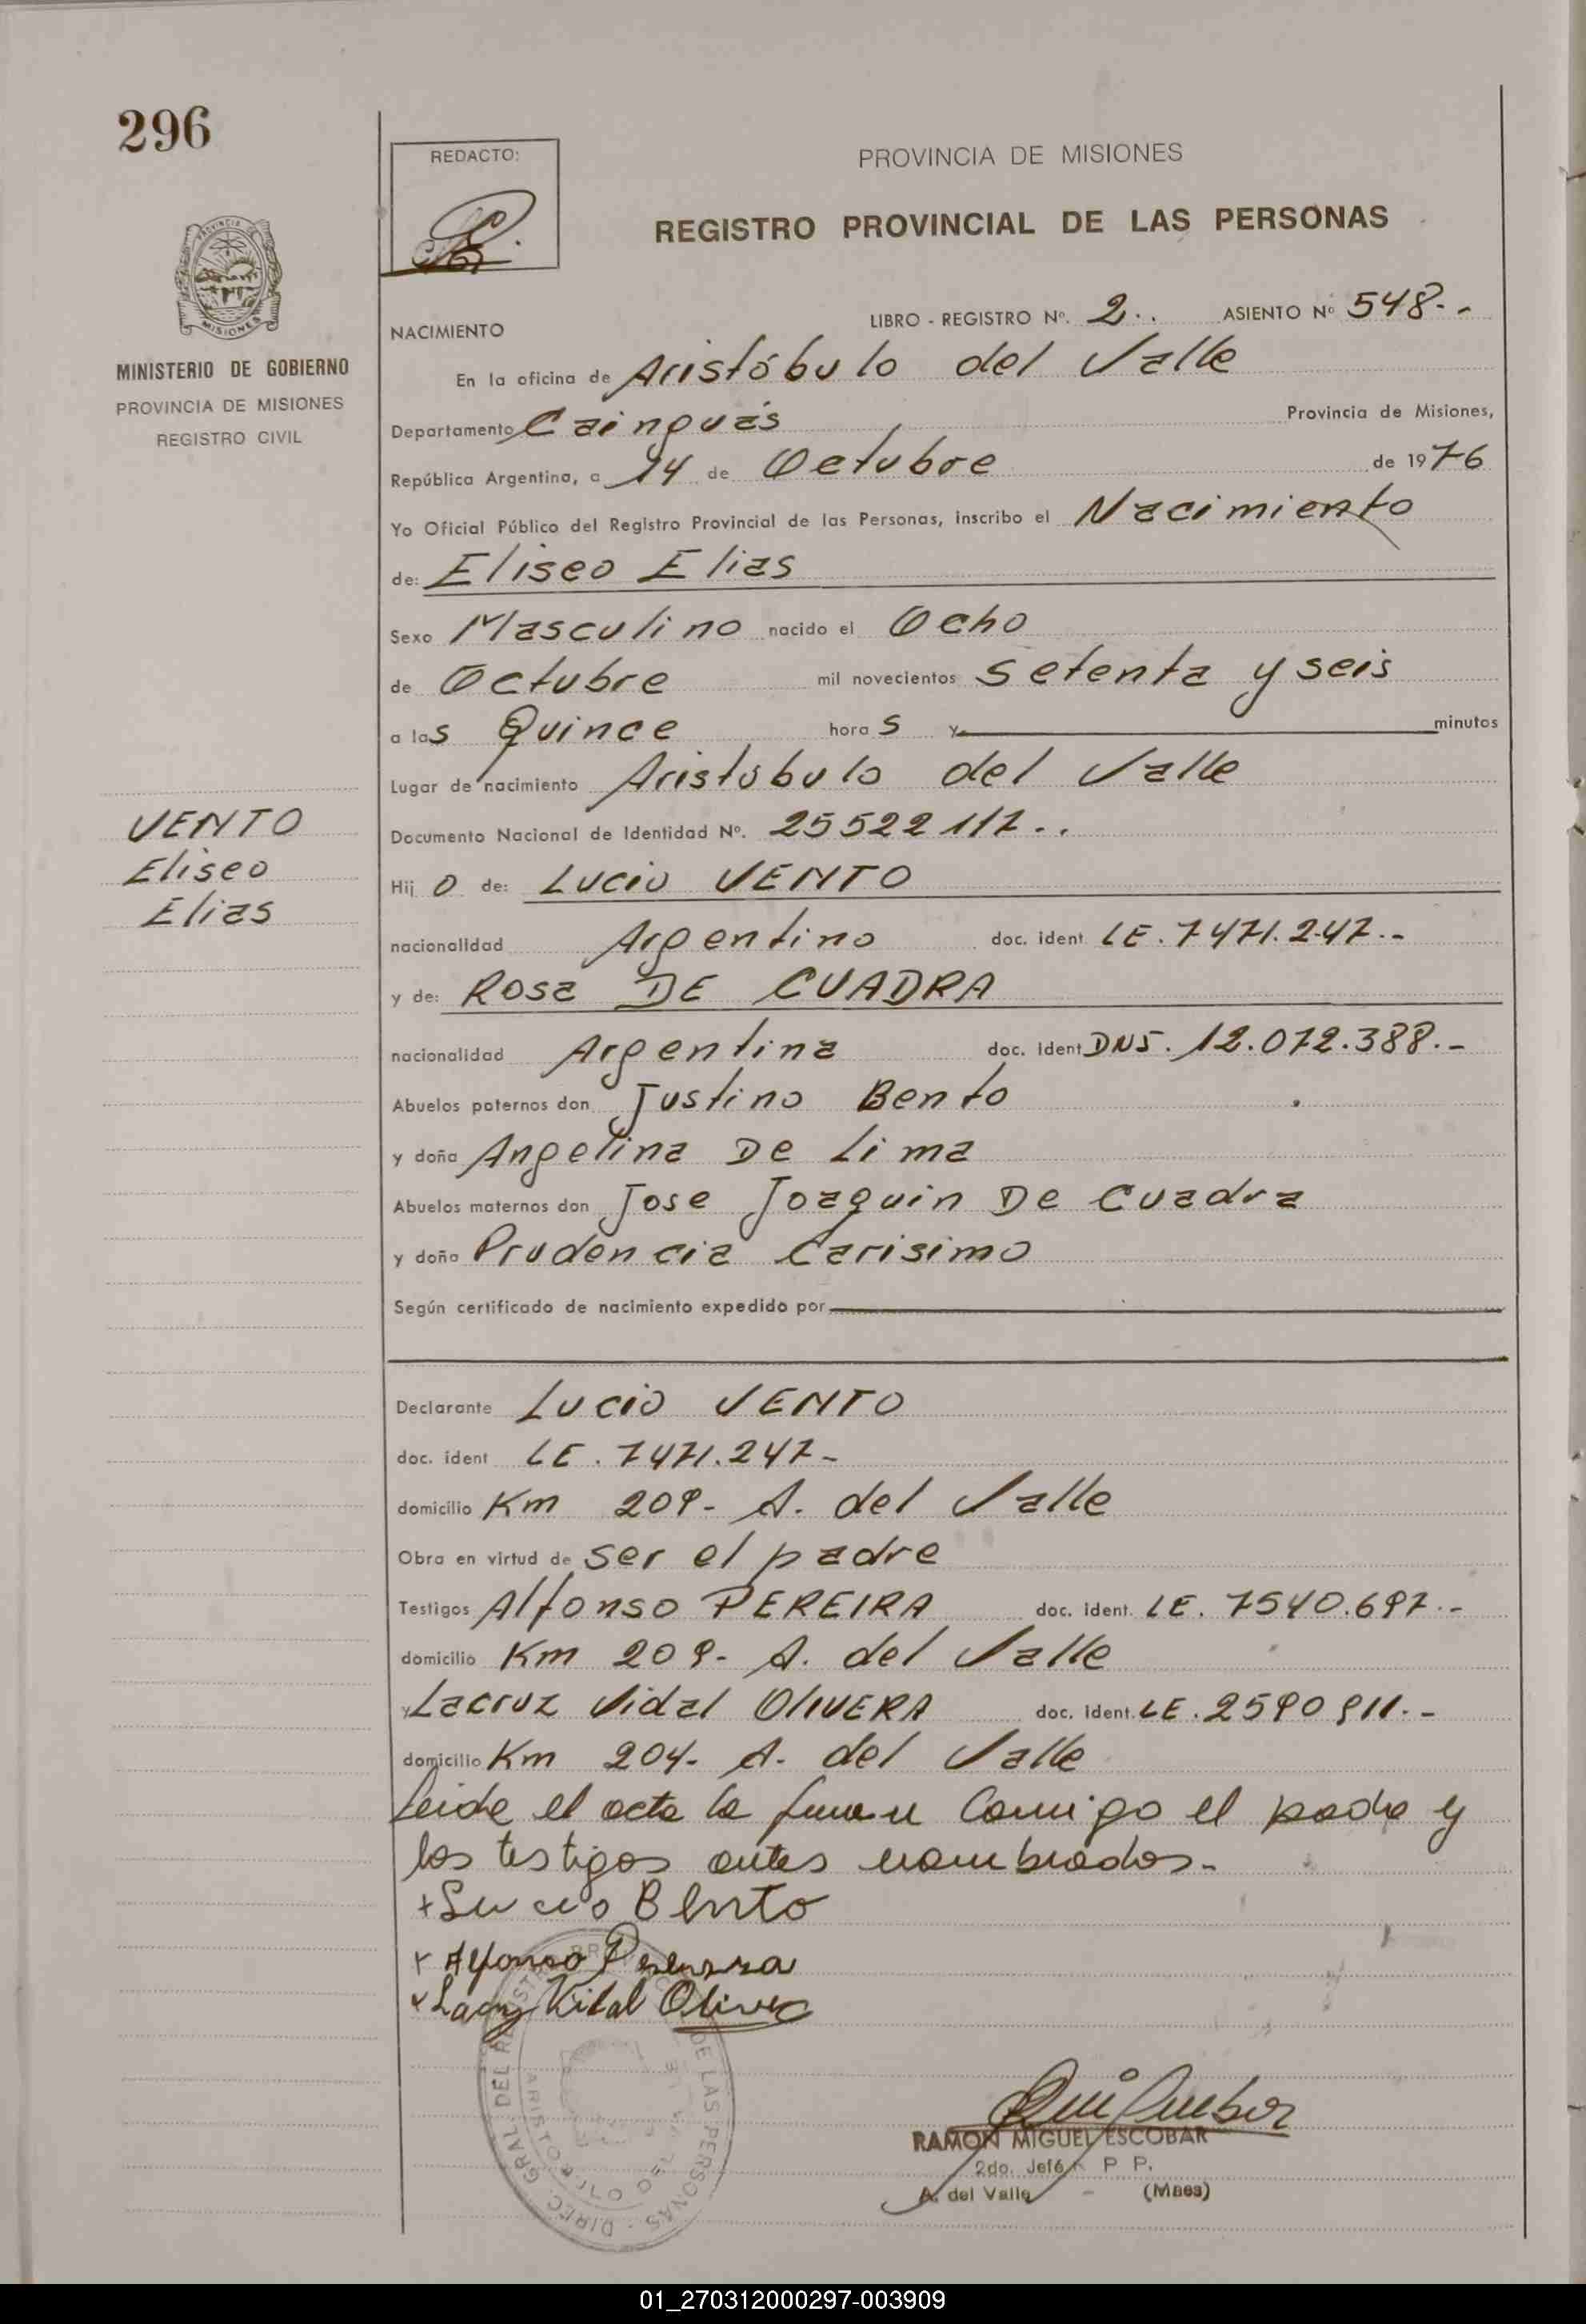 296
REDACTO:
PROVINCIA DE MISIONES
REGISTRO PROVINCIAL DE LAS PERSONAS
MISIONES
MINISTERIO DE GOBIERNO
PROVINCIA DE MISIONES
REGISTRO CIVIL
NACIMIENTO
LIBRO - REGISTRO Nº. 2.. ASIENTO Nº 548.-
En la oficina de Aristóbulo del Valle
Departamento Cainguás Provincia de Misiones,
República Argentina, a 14 de Octubre de 1976
Yo Oficial Público del Registro Provincial de las Personas, inscribo el Nacimiento
de: Eliseo Elias
Sexo Masculino nacido el Ocho
de Octubre mil novecientos setenta y seis
a las Quince horas y minutos
Lugar de nacimiento Aristóbulo del Valle
VENTO
Eliseo
Elias
Documento Nacional de Identidad Nº. 25522117..
Hijo de: Lucio VENTO
nacionalidad Argentino doc. ident LE. 7471.247.-
y de: Rosa DE CUADRA
nacionalidad Argentina doc. ident DNI. 12.072.388.-
Abuelos paternos don Justino Bento
y doña Angelina De Lima
Abuelos maternos don Jose Joaquin De Cuadra
y doña Prudencia Carisimo
Según certificado de nacimiento expedido por
Declarante Lucio VENTO
doc. ident LE. 7471.247-
domicilio Km 209- A. del Valle
Obra en virtud de ser el padre
Testigos Alfonso PEREIRA doc. ident. LE. 7540.697.-
domicilio Km 209- A. del Valle
y Lacruz Vidal OLIVERA doc. ident. LE. 2590911.-
domicilio Km 204- A. del Valle
Leida el acta la firman Conmigo el padre y
los testigos antes nombrados.-
+ Lucio Bento
x Alfonso Pereira
x Vidal Oliver
DIREC. GRAL. DEL REGISTRO PROVINCIAL DE LAS PERSONAS
ARISTOBULO DEL VALLE
RAMON MIGUEL ESCOBAR
2do. Jefe P P.
A. del Valle - (Mnes)
01_270312000297-003909